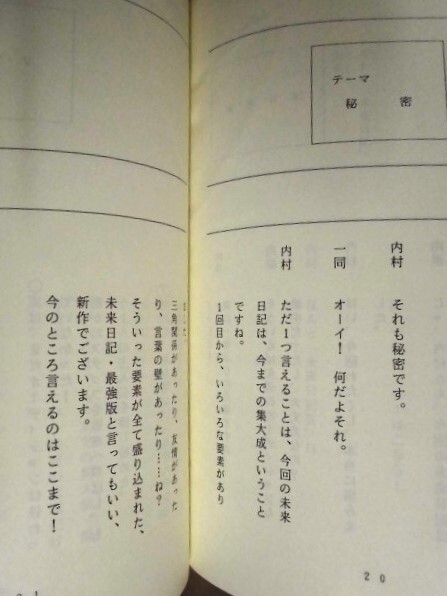 テーマ
秘密
内村 それも秘密です。
一同 オーイ! 何だよそれ。
内村 ただ1つ言えることは、今回の未来
日記は、今までの集大成ということ
ですね。
1回目から、いろいろな要素があり
ました
三角関係があったり、友情があった
り、言葉の壁があったり……ね?
そういった要素が全て盛り込まれた、
未来日記・最強版と言ってもいい、
新作でございます。
今のところ言えるのはここまで!
20
21